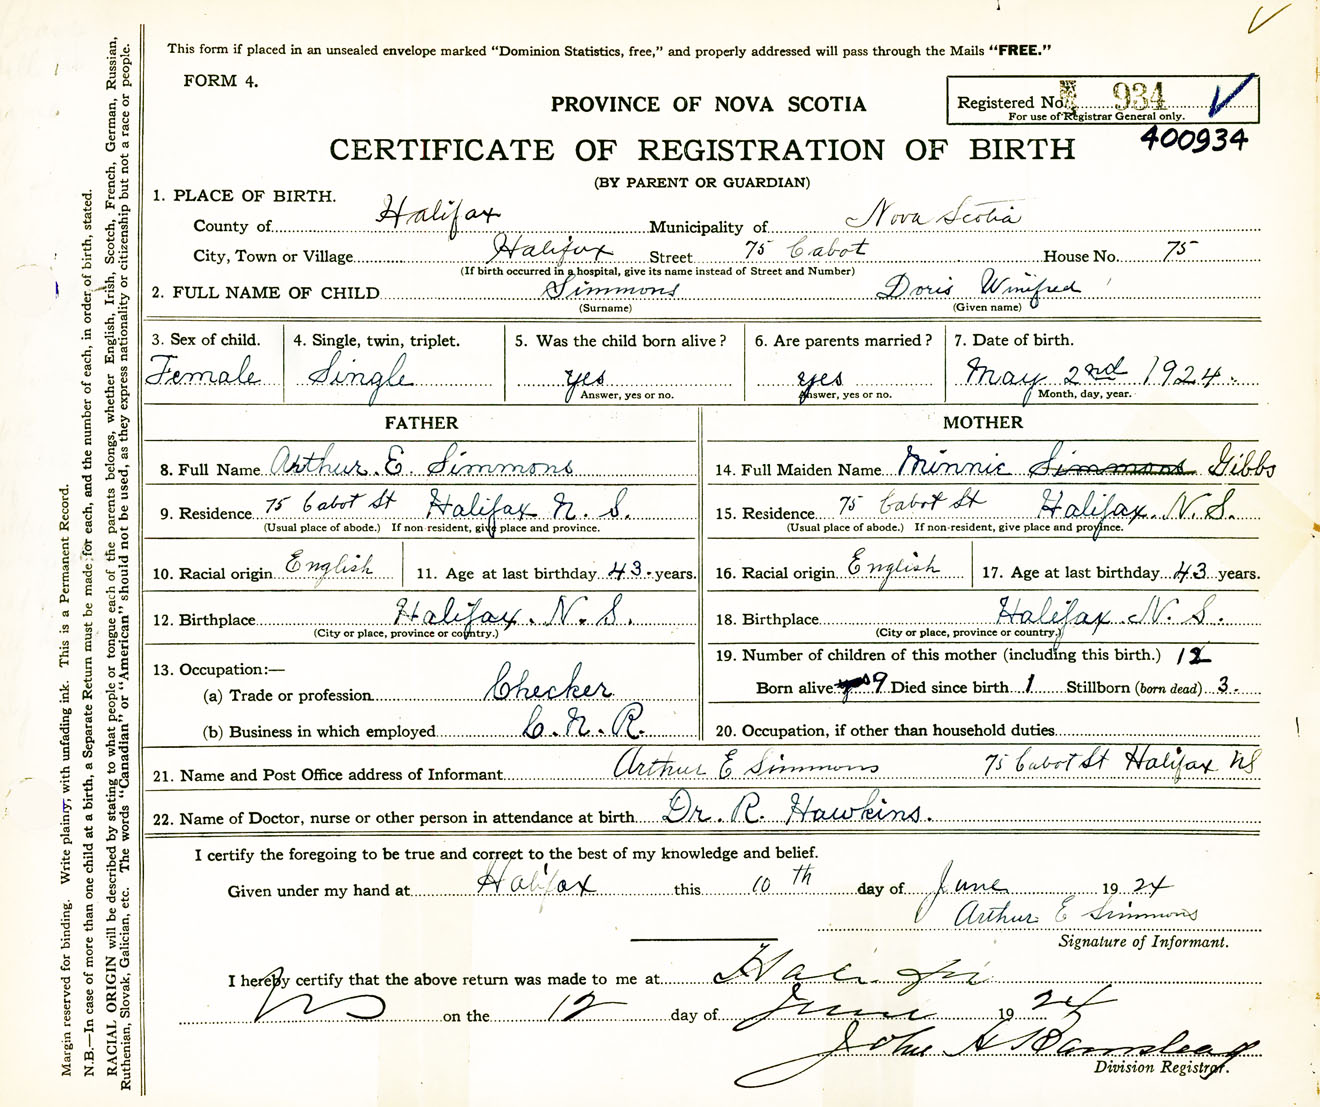 This form if placed in an unsealed envelope marked “Dominion Statistics, free,” and properly addressed will pass through the Mails “FREE.”
FORM 4.
PROVINCE OF NOVA SCOTIA
Registered No. 934
For use of Registrar General only.
400934
CERTIFICATE OF REGISTRATION OF BIRTH
(BY PARENT OR GUARDIAN)
1. PLACE OF BIRTH.
County of Halifax Municipality of Nova Scotia
City, Town or Village Halifax Street 75 Cabot House No. 75
(If birth occurred in a hospital, give its name instead of Street and Number)
2. FULL NAME OF CHILD Simmons Doris Winifred
(Surname) (Given name)
3. Sex of child. 4. Single, twin, triplet. 5. Was the child born alive? 6. Are parents married? 7. Date of birth.
Female Single yes yes May 2nd 1924.
Answer, yes or no. Answer, yes or no. Month, day, year.
FATHER MOTHER
8. Full Name Arthur. E. Simmons 14. Full Maiden Name Minnie Simmons Gibbs
9. Residence 75 Cabot St Halifax N. S. 15. Residence 75 Cabot St Halifax. N. S.
(Usual place of abode.) If non-resident, give place and province. (Usual place of abode.) If non-resident, give place and province.
10. Racial origin English 11. Age at last birthday 43. years. 16. Racial origin English 17. Age at last birthday 43 years.
12. Birthplace Halifax. N. S. 18. Birthplace Halifax N. S.
(City or place, province or country.) (City or place, province or country.)
13. Occupation:— 19. Number of children of this mother (including this birth.) 12
(a) Trade or profession Checker Born alive yes 9 Died since birth 1 Stillborn (born dead) 3.
(b) Business in which employed C. N. R. 20. Occupation, if other than household duties
21. Name and Post Office address of Informant Arthur E Simmons 75 Cabot St Halifax NS
22. Name of Doctor, nurse or other person in attendance at birth Dr. R. Hawkins.
I certify the foregoing to be true and correct to the best of my knowledge and belief.
Given under my hand at Halifax this 10th day of June 1924
Arthur E Simmons
Signature of Informant.
I hereby certify that the above return was made to me at Halifax
NS on the 12 day of June 1924
John A
Division Registrar.
Margin reserved for binding. Write plainly, with unfading ink. This is a Permanent Record.
N.B.—In case of more than one child at a birth, a Separate Return must be made for each, and the number of each, in order of birth, stated.
RACIAL ORIGIN will be described by stating to what people or tongue each of the parents belongs, whether English, Irish, Scotch, French, German, Russian,
Ruthenian, Slovak, Galician, etc. The words “Canadian” or “American” should not be used, as they express nationality or citizenship but not a race or people.